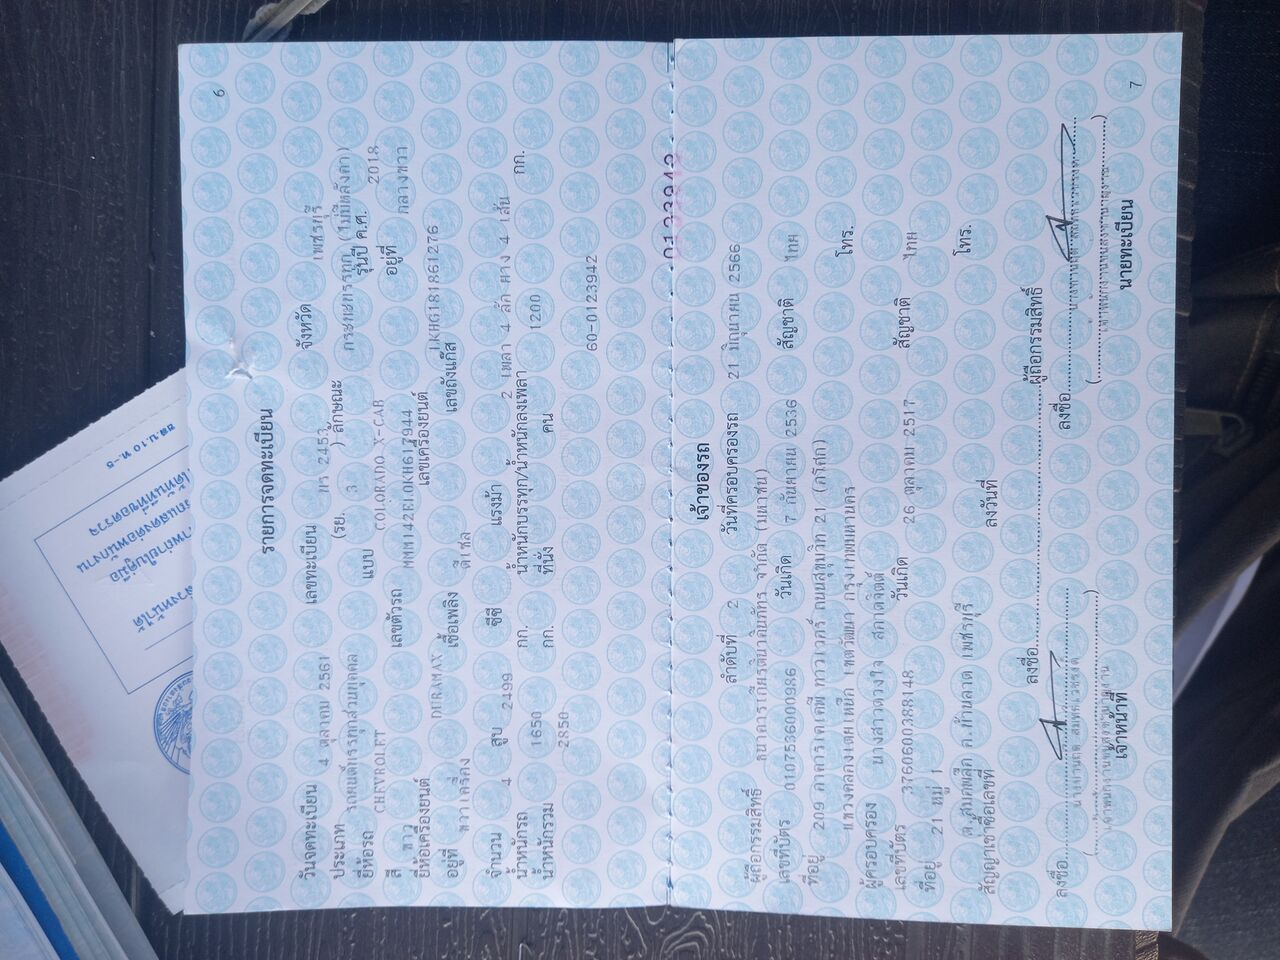 6
รายการจดทะเบียน
วันจดทะเบียน 4 ตุลาคม 2561 เลขทะเบียน 2453 จังหวัด เพชรบุรี
ประเภท รถยนต์บรรทุกส่วนบุคคล (รย. 3 ) ลักษณะ กระบะบรรทุก (ไม่มีหลังคา)
ยี่ห้อรถ CHEVROLET แบบ COLORADO X-CAB รุ่นปี ค.ศ. 2018
สี ขาว เลขตัวรถ MMM142ELOKH617944 อยู่ที่ กลางขวา
ยี่ห้อเครื่องยนต์ DURAMAX เลขเครื่องยนต์ LKHG181861276
อยู่ที่ ขวาเครื่อง เชื้อเพลิง ดีเซล เลขถังแก๊ส
จำนวน 4 สูบ 2499 ซีซี แรงม้า 2 เพลา 4 ล้อ ยาง 4 เส้น
น้ำหนักรถ 1650 กก. น้ำหนักบรรทุก/น้ำหนักลงเพลา 1200 กก.
น้ำหนักรวม 2850 กก. ที่นั่ง คน
60-0123942
เจ้าของรถ
ลำดับที่ 2 วันที่ครอบครองรถ 21 มิถุนายน 2566
ผู้ถือกรรมสิทธิ์ ธนาคารเกียรตินาคินภัทร จำกัด (มหาชน)
เลขที่บัตร 0107536000986 วันเกิด 7 กันยายน 2536 สัญชาติ ไทย
ที่อยู่ 209 อาคารเคเคพี ทาวเวอร์ ถนนสุขุมวิท 21 (อโศก)
แขวงคลองเตยเหนือ เขตวัฒนา กรุงเทพมหานคร โทร.
ผู้ครอบครอง นางสาวดวงใจ สอาดจิตต์
เลขที่บัตร 3760600388148 วันเกิด 26 ตุลาคม 2517 สัญชาติ ไทย
ที่อยู่ 21 หมู่ 1
ต.สมอพลือ อ.บ้านลาด เพชรบุรี โทร.
สัญญาเช่าซื้อเลขที่ ลงวันที่
ลงชื่อ ผู้ถือกรรมสิทธิ์
ลงชื่อ ลงชื่อ
เจ้าหน้าที่ นายทะเบียน
7